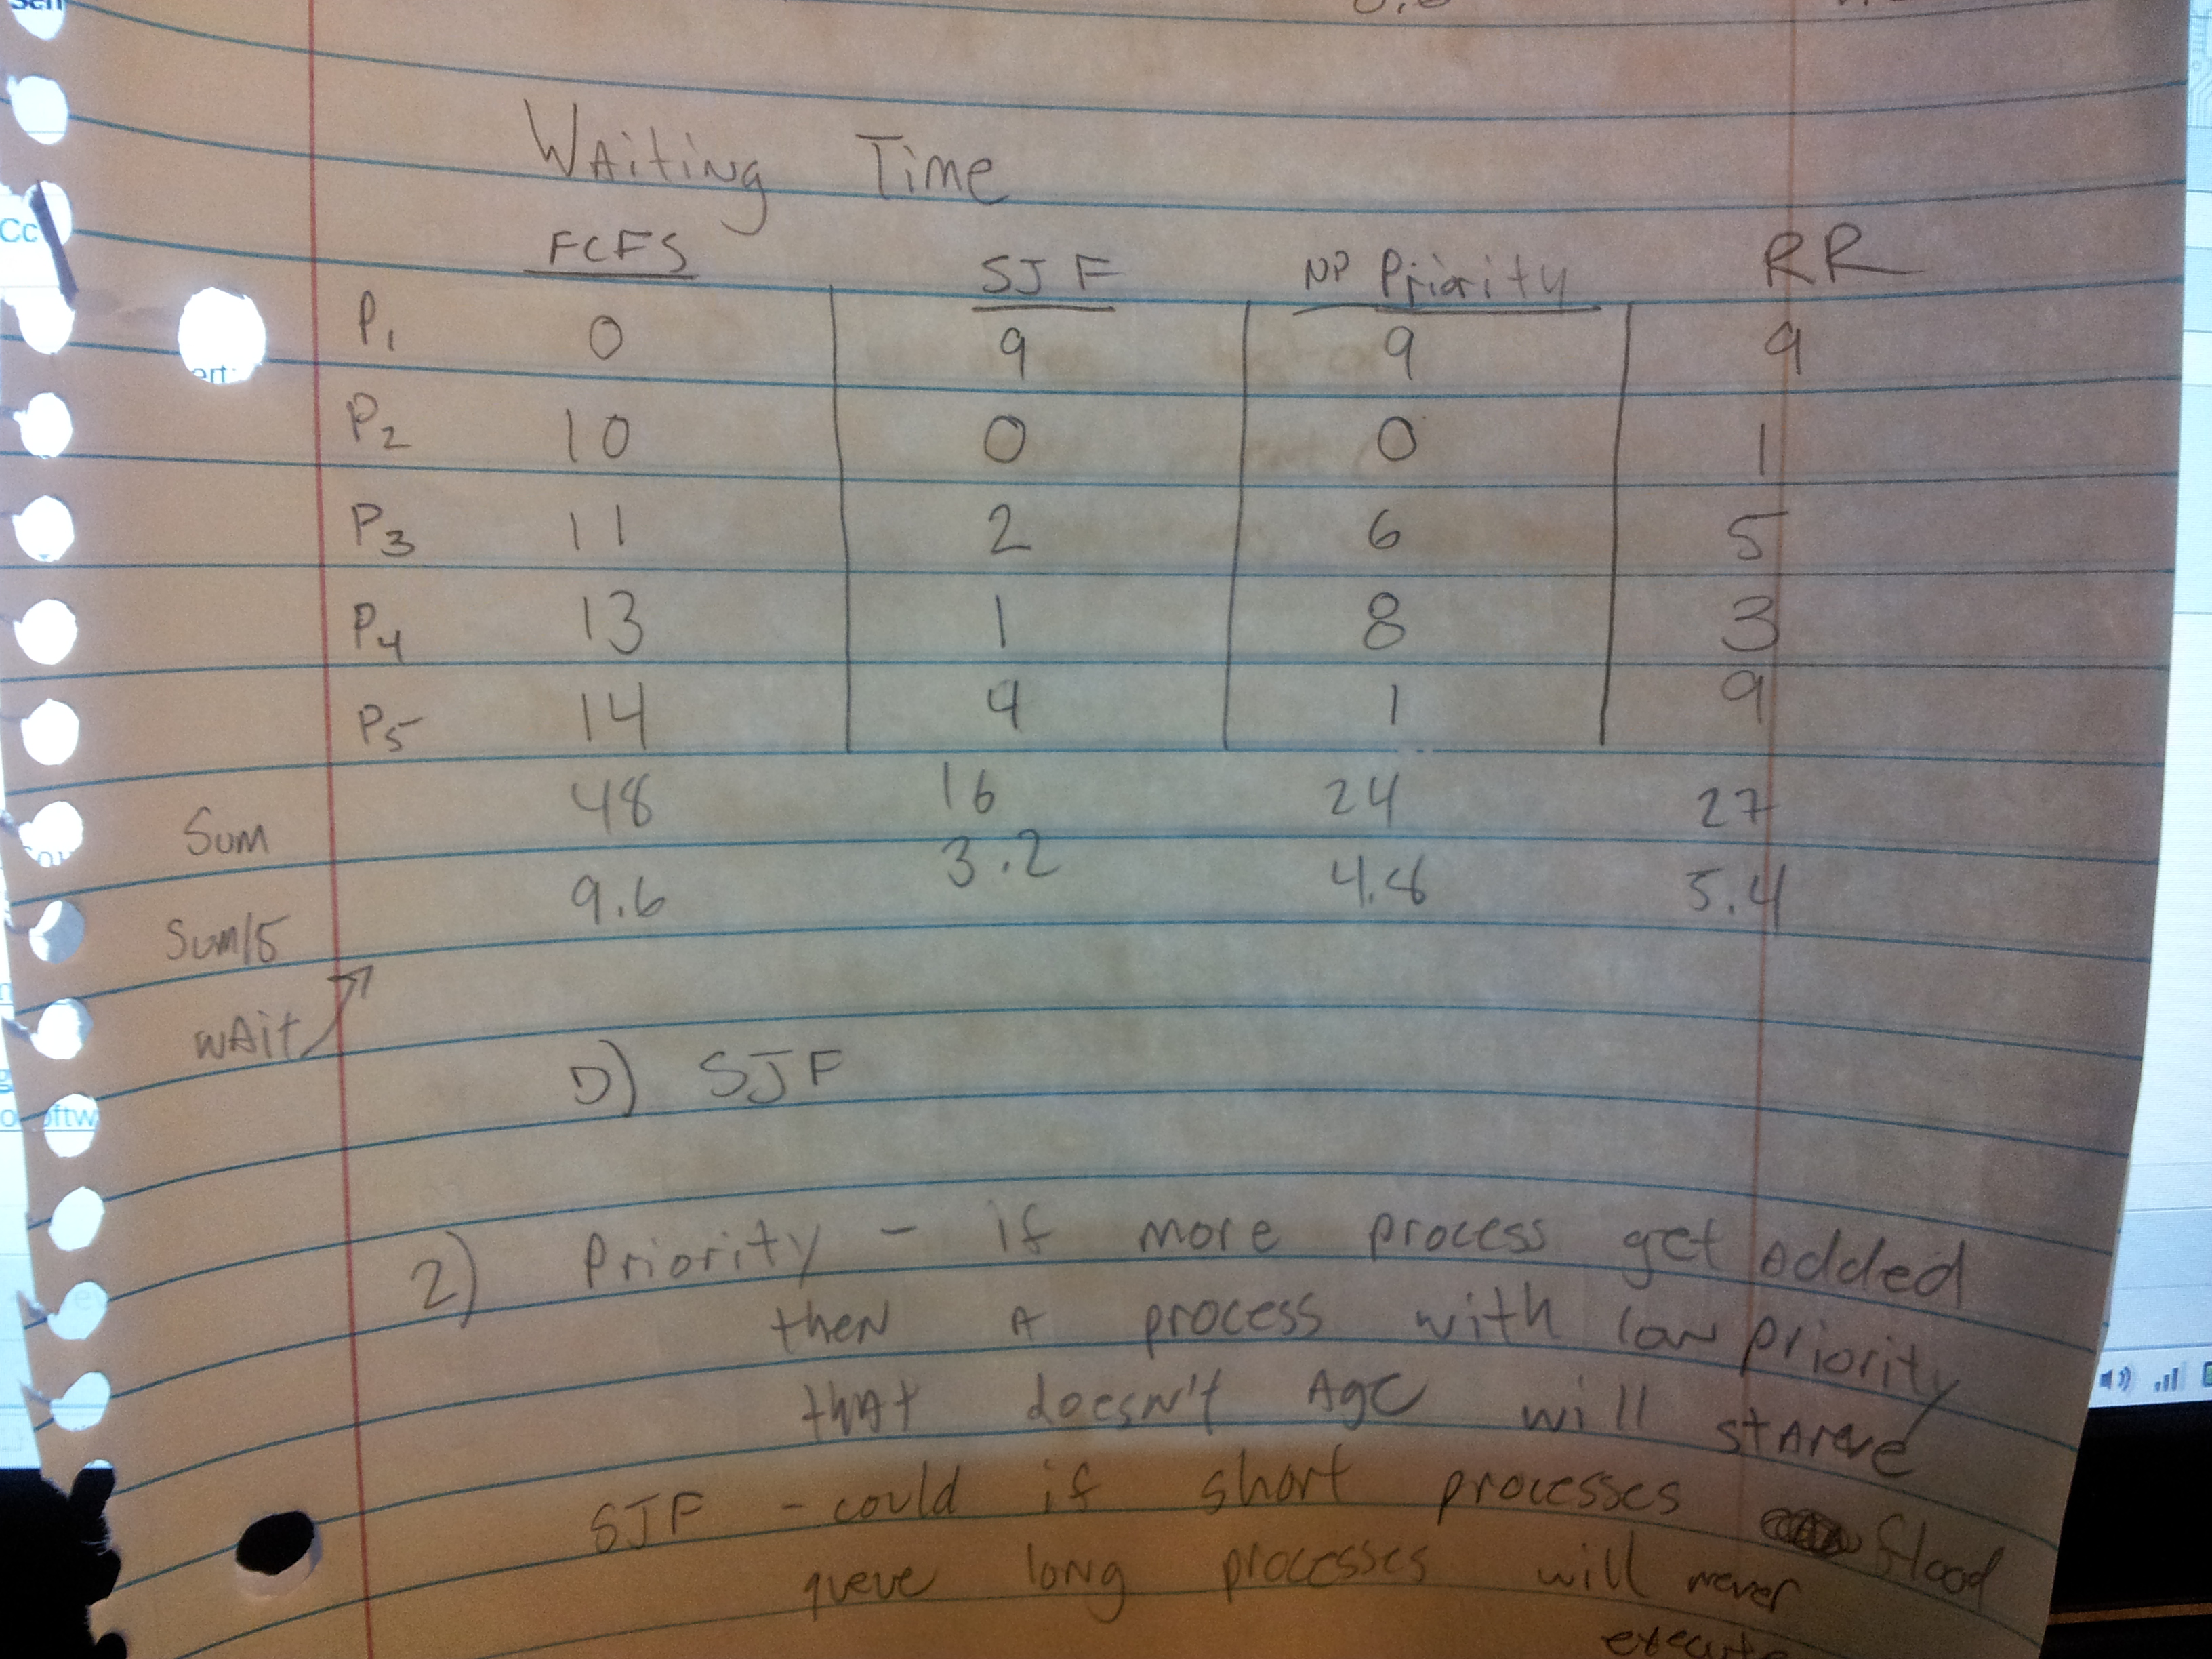 Waiting Time
FCFS SJF NP Priority RR
P1 0 9 9 9
P2 10 0 0 1
P3 11 2 6 5
P4 13 1 8 3
P5 14 4 1 9
Sum 48 16 24 27
Sum/5 9.6 3.2 4.8 5.4
WAit
D) SJF
2) Priority - if more process get Added
then A process with low priority
that doesn't Age will starve
SJF - could if short processes flood
queue long processes will never
execute